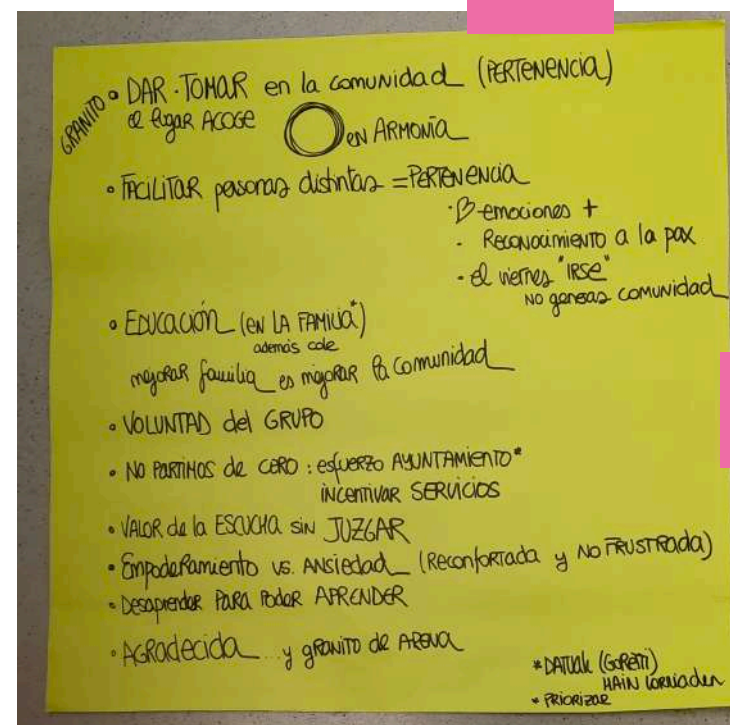 GRANITO
• DAR · TOMAR en la comunidad (PERTENENCIA)
el lugar ACOGE
EN ARMONÍA
• FACILITAR personas distintas = PERTENENCIA
· emociones +
· Reconocimiento a la pax
· el viernes "IRSE"
NO generas COMUNIDAD
• EDUCACIÓN (EN LA FAMILIA*)
además cole
mejorar familia es mejorar la comunidad
• VOLUNTAD del GRUPO
• NO PARTIMOS de CERO : esfuerzo AYUNTAMIENTO*
INCENTIVAR SERVICIOS
• VALOR de la ESCUCHA SIN JUZGAR
• Empoderamiento vs. ANSIEDAD (Reconfortada y NO FRUSTRADA)
• Desaprender PARA PODER APRENDER
• AGRADECIDA ... y GRANITO de ARENA
* DATUAK (GORETTI)
HAIN
* PRIORIZAR